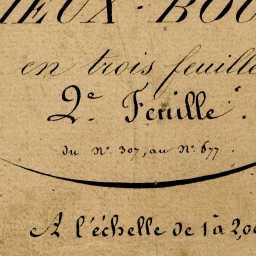 IEUX-BOU
en trois feuille
2.e Feuille.
du N.o 307, au N.o 677.
A l'échelle de 1 à 2,00